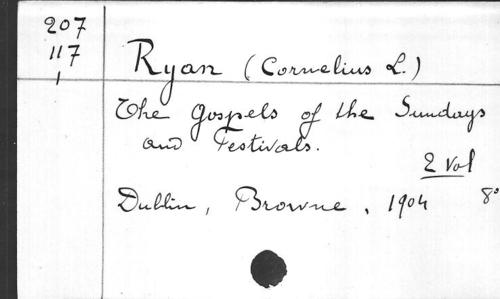 207
117
1
Ryan (Cornelius L.)
The Gospels of the Sundays
and Festivals.
2 Vol
Dublin, Browne, 1904 8°